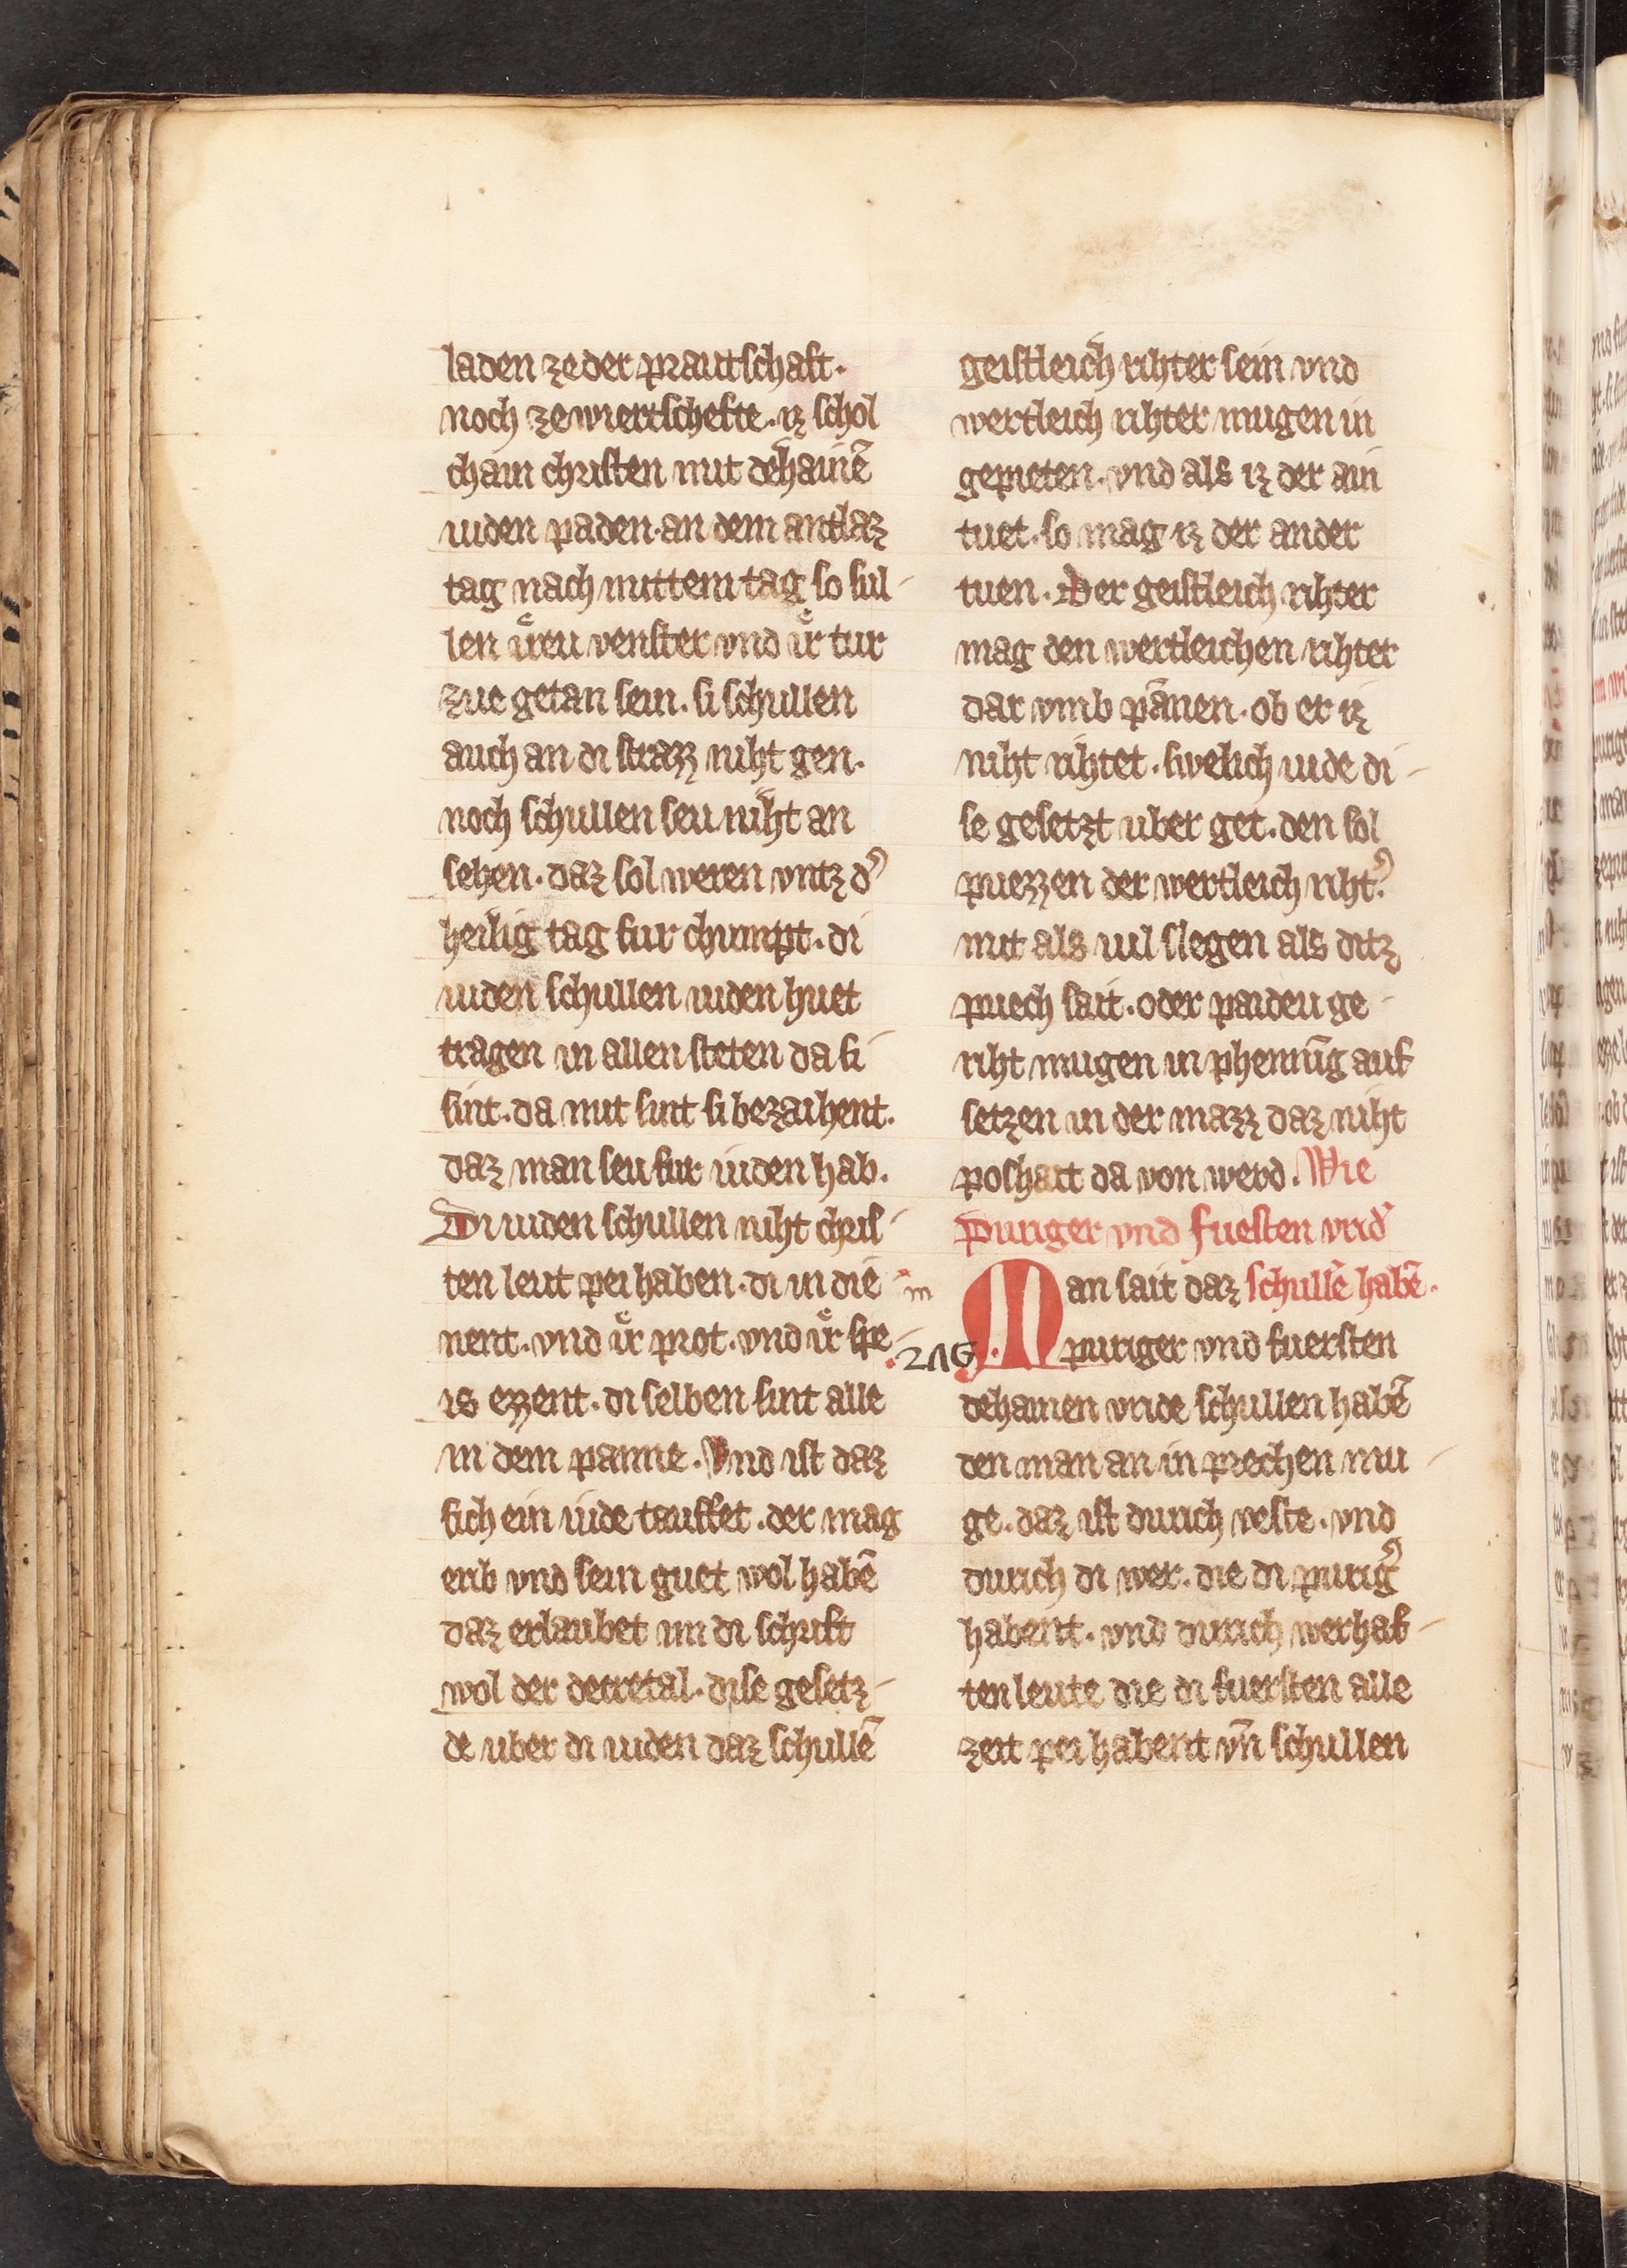 laden ze der prautschaft.
noch ze wiertschefte. iz schol
chain christen mit dehainē
iuden paden. an dem antlaz
tag nach mittem tag so sul-
len iͤreu venster vnd iͤr tur
zue getan sein. si schullen
auch an di strazz niht gen.
noch schullen seu niht an
sehen. daz sol weren vntz d͛
heilig tag fur chumpt. di
iuden schullen iuden huet
tragen in allen steten da si
sint. da mit sint si bezaihent.
daz man seu fur iuden hab.
Di iuden schullen niht chris-
ten leut pei haben. di in die-
nent. vnd iͤr prot. vnd iͤr spe-
is ezzent. di selben sint alle
in dem panne. Vnd ist daz
sich ein iude tauffet. der mag
erib vnd sein guet wol habē
daz erlaubet im di schrift
wol der decretal. dise gesetz-
de uber di iuden daz schullē
geistleich rihter sein vnd
wertleich rihter mugen in
gepieten. vnd als iz der ain
tuet. so mag iz der ander
tuen. Der geistleich rihter
mag den wertleichen rihter
dar vmb pānen. ob er iz
niht rihtet. swelich iude di-
se gesetzt uber get. den sol
puezzen der wertleich riht͛.
mit als uil slegen als ditz
puech sait. oder paideu ge-
riht mugen in phennīg auf
setzen in der mazz daz niht
poshait da von werd. Wie
Puriger vnd fuesten vrid͛
m
Man sait daz schullē habē.
.216. puriger vnd fuersten
dehainen vride schullen habē
den man an in prechen mu-
ge. daz ist durich veste. vnd
durich di wer. die di purig͛
habent. vnd durich werhaf-
ten leute die di fuersten alle
zeit pei habent vn̄ schullen